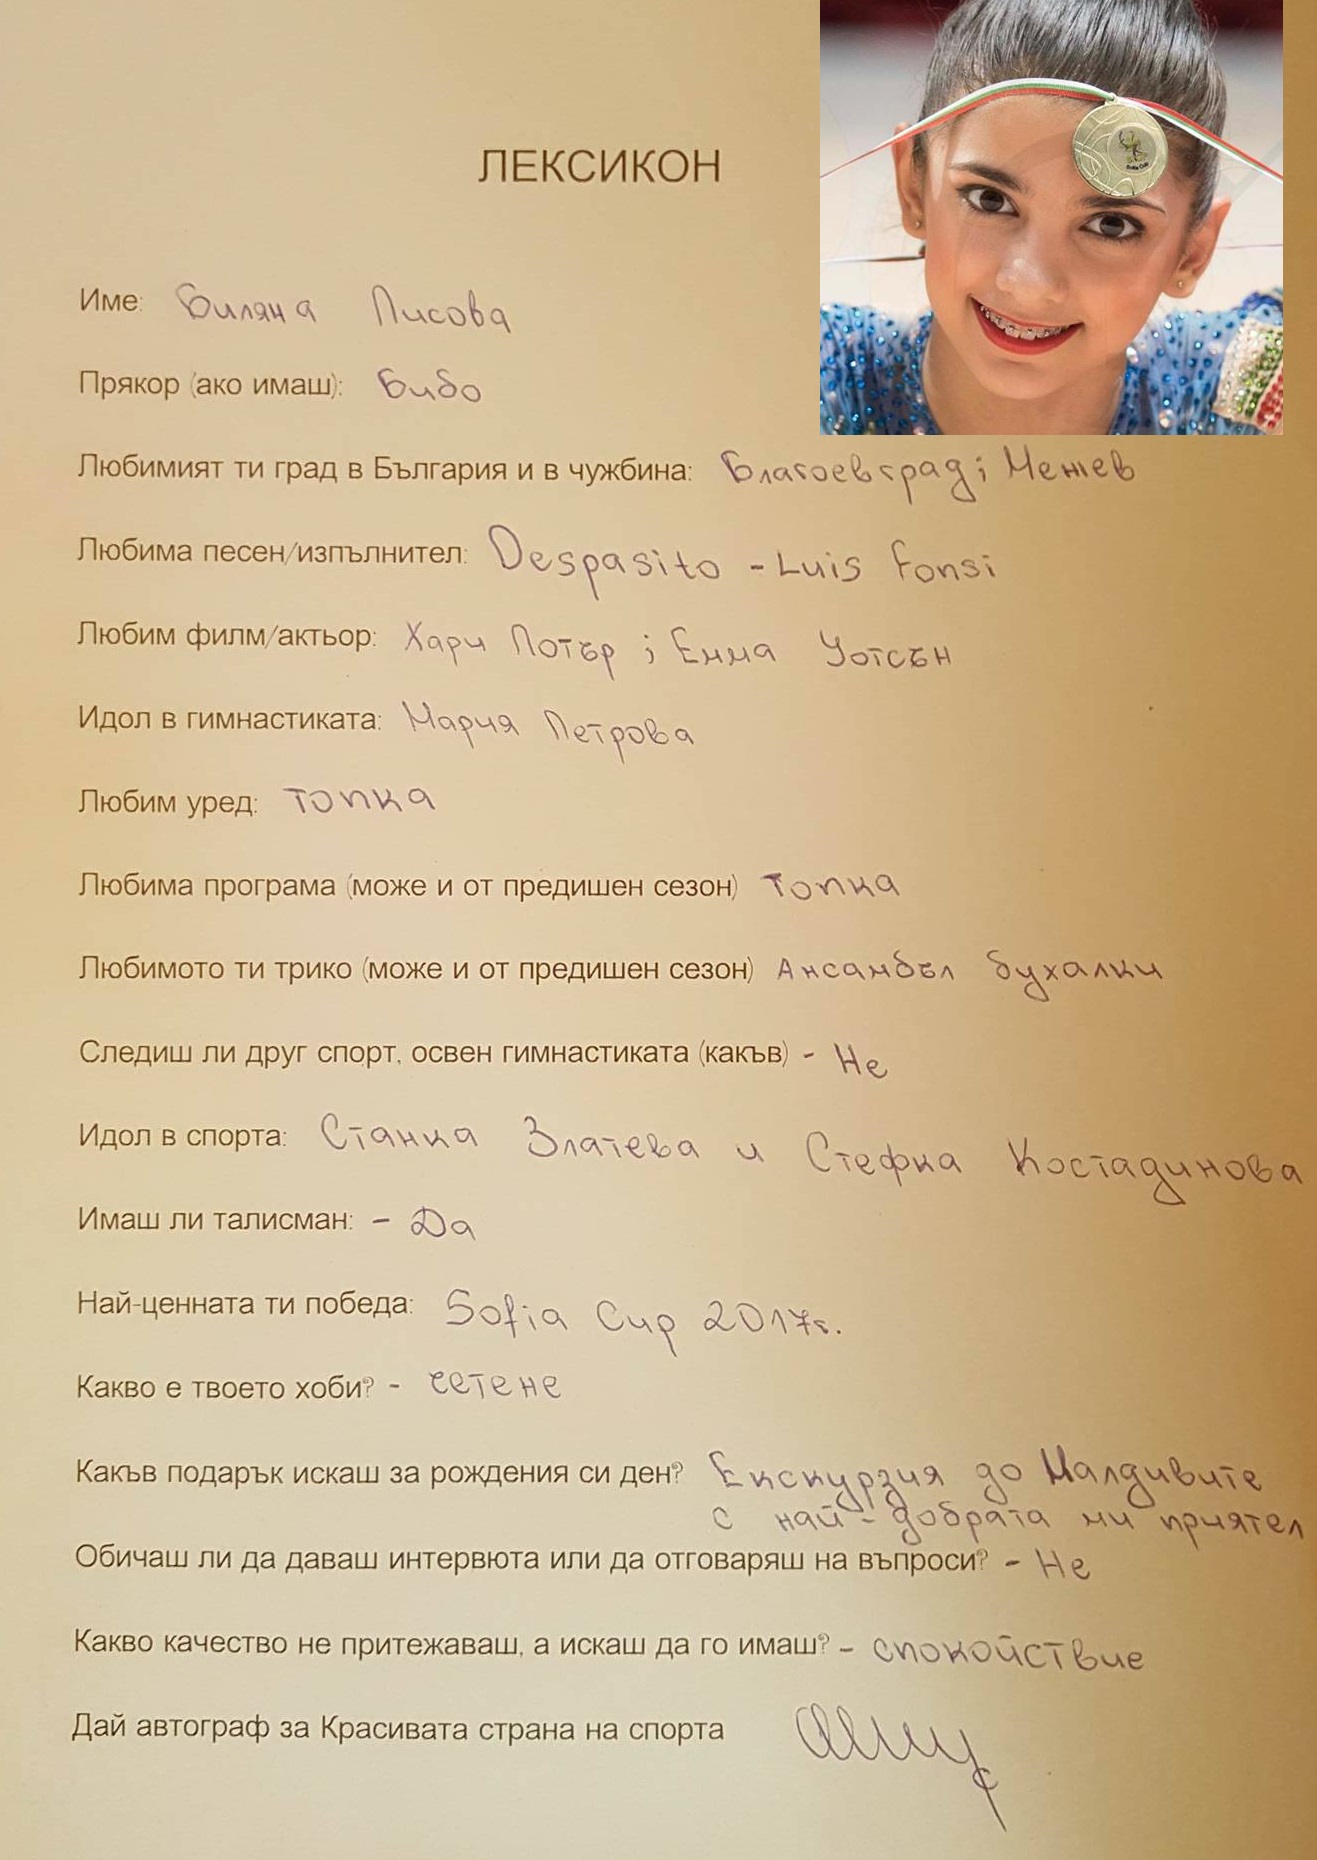 Sofia Cup
ЛЕКСИКОН
Име: Биляна Писова
Прякор (ако имаш): Бибо
Любимият ти град в България и в чужбина: Благоевград; Межев
Любима песен/изпълнител: Despasito - Luis Fonsi
Любим филм/актьор: Хари Потър ; Емма Уотсън
Идол в гимнастиката: Мария Петрова
Любим уред: Топка
Любима програма (може и от предишен сезон) Топка
Любимото ти трико (може и от предишен сезон) Ансамбъл бухалки
Следиш ли друг спорт, освен гимнастиката (какъв) - Не
Идол в спорта: Станка Златева и Стефка Костадинова
Имаш ли талисман: - Да
Най-ценната ти победа: Sofia Cup 2017г.
Какво е твоето хоби? - четене
Какъв подарък искаш за рождения си ден? Екскурзия до Малдивите
с най-добрата ми приятел
Обичаш ли да даваш интервюта или да отговаряш на въпроси? - Не
Какво качество не притежаваш, а искаш да го имаш? - спокойствие
Дай автограф за Красивата страна на спорта